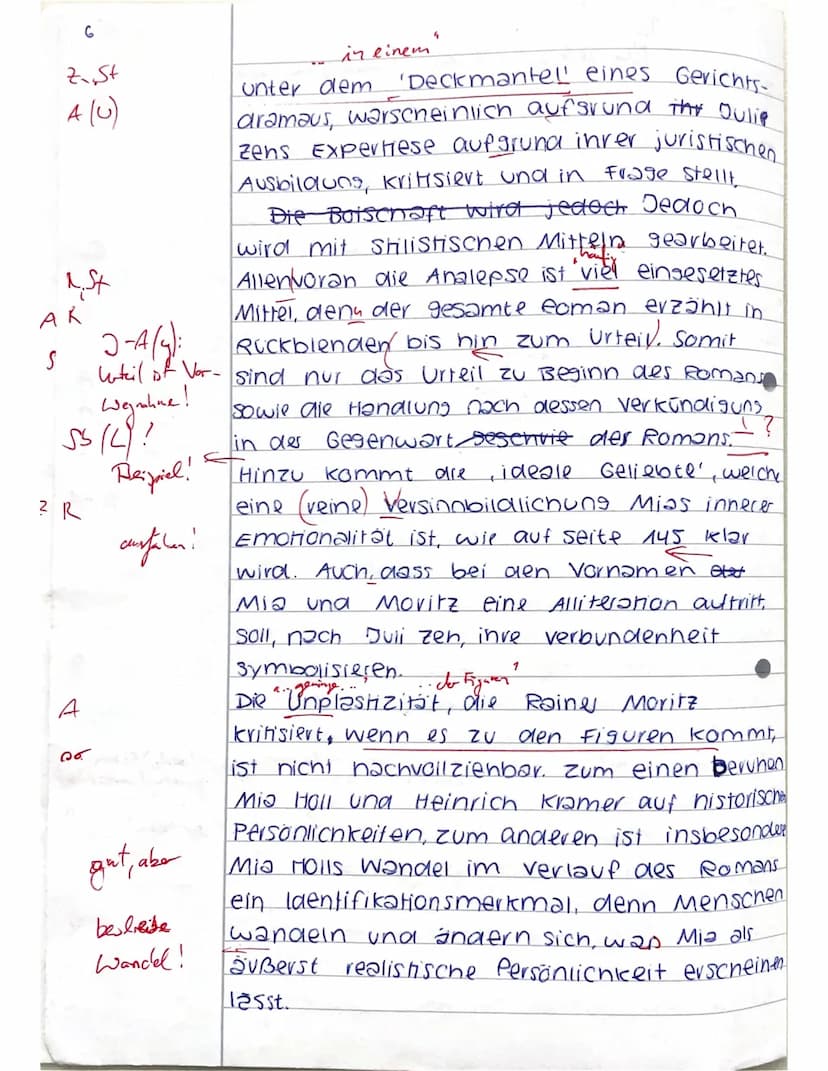 6
„ in einem "
Z, St
unter dem 'Deckmantel' eines Gerichts-
A (U)
dramaus, warscheinlich aufgrund Ihr Julie
zens Expertiese aufgrund ihrer juristischen
Ausbildung, kritisiert und in Frage stellt.
Die Botschaft wird jedoch Jedoch
wird mit stilistischen Mitteln gearbeitet.
häufig
St
Allenvoran die Analepse ist viel eingesetztes
A R
Mittel, denn der gesamte Roman erzählt in
J-A (y):
Rückblenden bis hin zum Urteil. Somit
S
Urteil ist Vor-
sind nur das Urteil zu Beginn des Romans
wegnahme!
sowie die Handlung nach dessen Verkündigung
SS (L) !
in der Gegenwart des Romans. ?
Beispiel!
Hinzu kommt die ,ideale Geliebte', welche
? R
eine (reine) Versinnbildlichung Mias innerer
ausführen!
Emotionalität ist, wie auf Seite 145 klar
wird. Auch, dass bei den Vornamen
Mia und Moritz eine Alliteration auftritt,
soll, nach Juli Zen, ihre verbundenheit
symbolisieren.
geringe der Figuren
A
Die Unplastizität, die Rainer Moritz
kritisiert, wenn es zu den Figuren kommt,
ist nicht nachvollziehbar. Zum einen beruhen
Mia Holl und Heinrich Kramer auf historischen
Persönlichkeiten, zum anderen ist insbesondere
gut, aber
Mia Holls Wandel im Verlauf des Romans
ein Identifikationsmerkmal, denn Menschen
wandeln und ändern sich, was Mia als
Wandel!
äußerst realistische Persönlichkeit erscheinen
lässt.